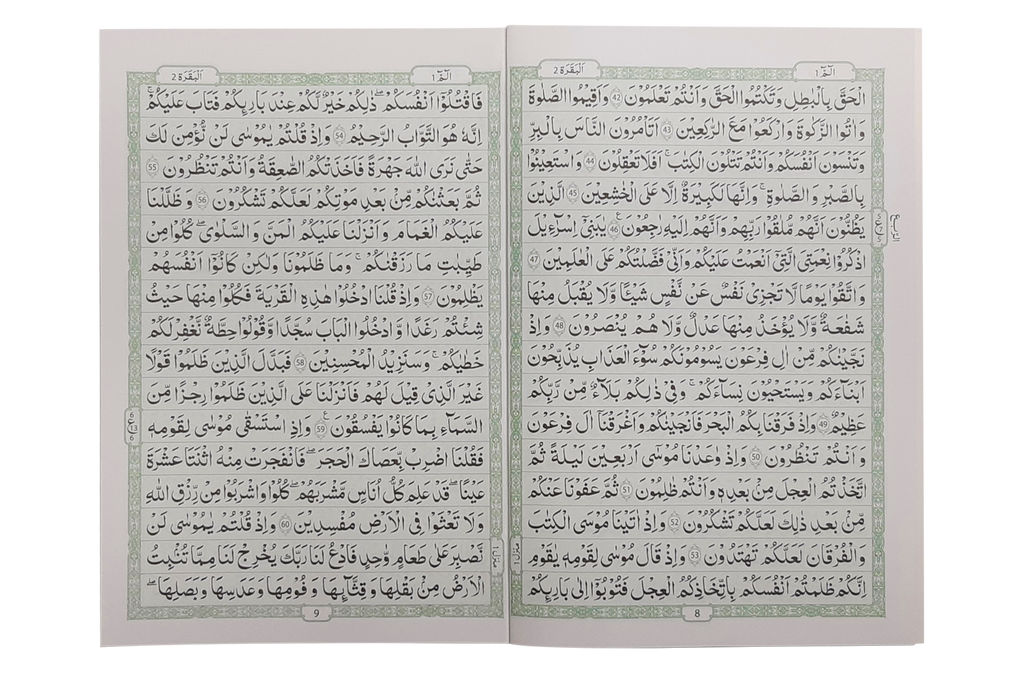 الٓمّٓ 1
اَلْبَقَرَة 2
الْحَقَّ بِالْبَاطِلِ وَتَكْتُمُوا الْحَقَّ وَاَنْتُمْ تَعْلَمُوْنَ 42 وَاَقِيْمُوا الصَّلٰوةَ
وَاٰتُوا الزَّكٰوةَ وَارْكَعُوْا مَعَ الرّٰكِعِيْنَ 43 اَتَاْمُرُوْنَ النَّاسَ بِالْبِرِّ
وَتَنْسَوْنَ اَنْفُسَكُمْ وَاَنْتُمْ تَتْلُوْنَ الْكِتٰبَ ؕ اَفَلَا تَعْقِلُوْنَ 44 وَاسْتَعِيْنُوْا
بِالصَّبْرِ وَالصَّلٰوةِ ؕ وَاِنَّهَا لَكَبِيْرَةٌ اِلَّا عَلَى الْخٰشِعِيْنَ 45 الَّذِيْنَ
يَظُنُّوْنَ اَنَّهُمْ مُّلٰقُوْا رَبِّهِمْ وَاَنَّهُمْ اِلَيْهِ رٰجِعُوْنَ 46 يٰبَنِيْٓ اِسْرَآءِيْلَ
اذْكُرُوْا نِعْمَتِيَ الَّتِيْٓ اَنْعَمْتُ عَلَيْكُمْ وَاَنِّيْ فَضَّلْتُكُمْ عَلَى الْعٰلَمِيْنَ 47
وَاتَّقُوْا يَوْمًا لَّا تَجْزِيْ نَفْسٌ عَنْ نَّفْسٍ شَيْئًا وَّلَا يُقْبَلُ مِنْهَا
شَفَاعَةٌ وَّلَا يُؤْخَذُ مِنْهَا عَدْلٌ وَّلَا هُمْ يُنْصَرُوْنَ 48 وَاِذْ
نَجَّيْنٰكُمْ مِّنْ اٰلِ فِرْعَوْنَ يَسُوْمُوْنَكُمْ سُوْٓءَ الْعَذَابِ يُذَبِّحُوْنَ
اَبْنَآءَكُمْ وَيَسْتَحْيُوْنَ نِسَآءَكُمْ ؕ وَفِيْ ذٰلِكُمْ بَلَآءٌ مِّنْ رَّبِّكُمْ
عَظِيْمٌ 49 وَاِذْ فَرَقْنَا بِكُمُ الْبَحْرَ فَاَنْجَيْنٰكُمْ وَاَغْرَقْنَآ اٰلَ فِرْعَوْنَ
وَاَنْتُمْ تَنْظُرُوْنَ 50 وَاِذْ وٰعَدْنَا مُوْسٰٓى اَرْبَعِيْنَ لَيْلَةً ثُمَّ
اتَّخَذْتُمُ الْعِجْلَ مِنْۢ بَعْدِهٖ وَاَنْتُمْ ظٰلِمُوْنَ 51 ثُمَّ عَفَوْنَا عَنْكُمْ
مِّنْۢ بَعْدِ ذٰلِكَ لَعَلَّكُمْ تَشْكُرُوْنَ 52 وَاِذْ اٰتَيْنَا مُوْسَى الْكِتٰبَ
وَالْفُرْقَانَ لَعَلَّكُمْ تَهْتَدُوْنَ 53 وَاِذْ قَالَ مُوْسٰى لِقَوْمِهٖ يٰقَوْمِ
اِنَّكُمْ ظَلَمْتُمْ اَنْفُسَكُمْ بِاتِّخَاذِكُمُ الْعِجْلَ فَتُوْبُوْٓا اِلٰى بَارِىِٕكُمْ
8
الٓمّٓ 1
اَلْبَقَرَة 2
فَاقْتُلُوْٓا اَنْفُسَكُمْ ؕ ذٰلِكُمْ خَيْرٌ لَّكُمْ عِنْدَ بَارِىِٕكُمْ فَتَابَ عَلَيْكُمْ ؕ
اِنَّهٗ هُوَ التَّوَّابُ الرَّحِيْمُ 54 وَاِذْ قُلْتُمْ يٰمُوْسٰى لَنْ نُّؤْمِنَ لَكَ
حَتّٰى نَرَى اللّٰهَ جَهْرَةً فَاَخَذَتْكُمُ الصّٰعِقَةُ وَاَنْتُمْ تَنْظُرُوْنَ 55
ثُمَّ بَعَثْنٰكُمْ مِّنْۢ بَعْدِ مَوْتِكُمْ لَعَلَّكُمْ تَشْكُرُوْنَ 56 وَظَلَّلْنَا
عَلَيْكُمُ الْغَمَامَ وَاَنْزَلْنَا عَلَيْكُمُ الْمَنَّ وَالسَّلْوٰى ؕ كُلُوْا مِنْ
طَيِّبٰتِ مَا رَزَقْنٰكُمْ ؕ وَمَا ظَلَمُوْنَا وَلٰكِنْ كَانُوْٓا اَنْفُسَهُمْ
يَظْلِمُوْنَ 57 وَاِذْ قُلْنَا ادْخُلُوْا هٰذِهِ الْقَرْيَةَ فَكُلُوْا مِنْهَا حَيْثُ
شِئْتُمْ رَغَدًا وَّادْخُلُوا الْبَابَ سُجَّدًا وَّقُوْلُوْا حِطَّةٌ نَّغْفِرْ لَكُمْ
خَطٰيٰكُمْ ؕ وَسَنَزِيْدُ الْمُحْسِنِيْنَ 58 فَبَدَّلَ الَّذِيْنَ ظَلَمُوْا قَوْلًا
غَيْرَ الَّذِيْ قِيْلَ لَهُمْ فَاَنْزَلْنَا عَلَى الَّذِيْنَ ظَلَمُوْا رِجْزًا مِّنَ
السَّمَآءِ بِمَا كَانُوْا يَفْسُقُوْنَ 59 وَاِذِ اسْتَسْقٰى مُوْسٰى لِقَوْمِهٖ
فَقُلْنَا اضْرِبْ بِّعَصَاكَ الْحَجَرَ ؕ فَانْفَجَرَتْ مِنْهُ اثْنَتَا عَشْرَةَ
عَيْنًا ؕ قَدْ عَلِمَ كُلُّ اُنَاسٍ مَّشْرَبَهُمْ ؕ كُلُوْا وَاشْرَبُوْا مِنْ رِّزْقِ اللّٰهِ
وَلَا تَعْثَوْا فِي الْاَرْضِ مُفْسِدِيْنَ 60 وَاِذْ قُلْتُمْ يٰمُوْسٰى لَنْ
نَّصْبِرَ عَلٰى طَعَامٍ وَّاحِدٍ فَادْعُ لَنَا رَبَّكَ يُخْرِجْ لَنَا مِمَّا تُنْۢبِتُ
الْاَرْضُ مِنْۢ بَقْلِهَا وَقِثَّآئِهَا وَفُوْمِهَا وَعَدَسِهَا وَبَصَلِهَا ؕ
9